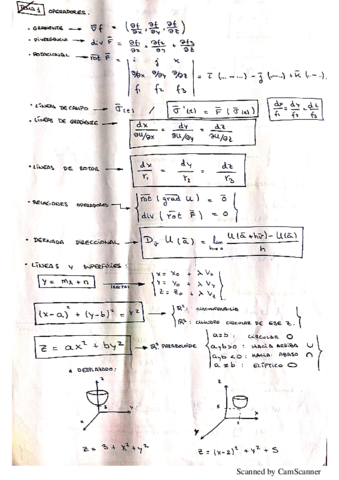 TEMA 1 OPERADORES.
· GRADIENTE ∇f = (∂f/∂x, ∂f/∂y, ∂f/∂z)
· DIVERGENCIA div F̄ = ∂f1/∂x + ∂f2/∂y + ∂f3/∂z
· ROTACIONAL rot F̄ = | i j k
∂/∂x ∂/∂y ∂/∂z
f1 f2 f3 | = ī (... - ...) - j̄ (... - ...) + k̄ (... - ...)
· LÍNEAS DE CAMPO σ̄(t) / σ̄'(t) = F̄(σ̄(t)) dx/f1 = dy/f2 = dz/f3
· LÍNEAS DE GRADIENTE dx/∂U/∂x = dy/∂U/∂y = dz/∂U/∂z
· LÍNEAS DE ROTOR dx/r1 = dy/r2 = dz/r3
· RELACIONES OPERADORES { rot (grad U) = 0̄
div (rot F̄) = 0
· DERIVADA DIRECCIONAL Dv̄ U(ā) = lim h→0 U(ā + hv̄) - U(ā) / h
· LÍNEAS Y SUPERFICIES:
y = mx + n RECTAS { x = x0 + λ V1
y = y0 + λ V2
z = z0 + λ V3
(x-a)² + (y-b)² = r² { R²: CIRCUNFERENCIA
R³: CILINDRO CIRCULAR DE EJE Z.
z = ax² + by² R³ PARABOLOIDE { a = b : CIRCULAR O
a,b > 0 : HACIA ARRIBA ∪
a,b < 0 : HACIA ABAJO ∩
a ≠ b : ELÍPTICO 0
* DESPLAZADO:
z
3
y
x
z
5
2
y
x
z = 3 + x² + y²
z = (x-2)² + y² + 5
Scanned by CamScanner